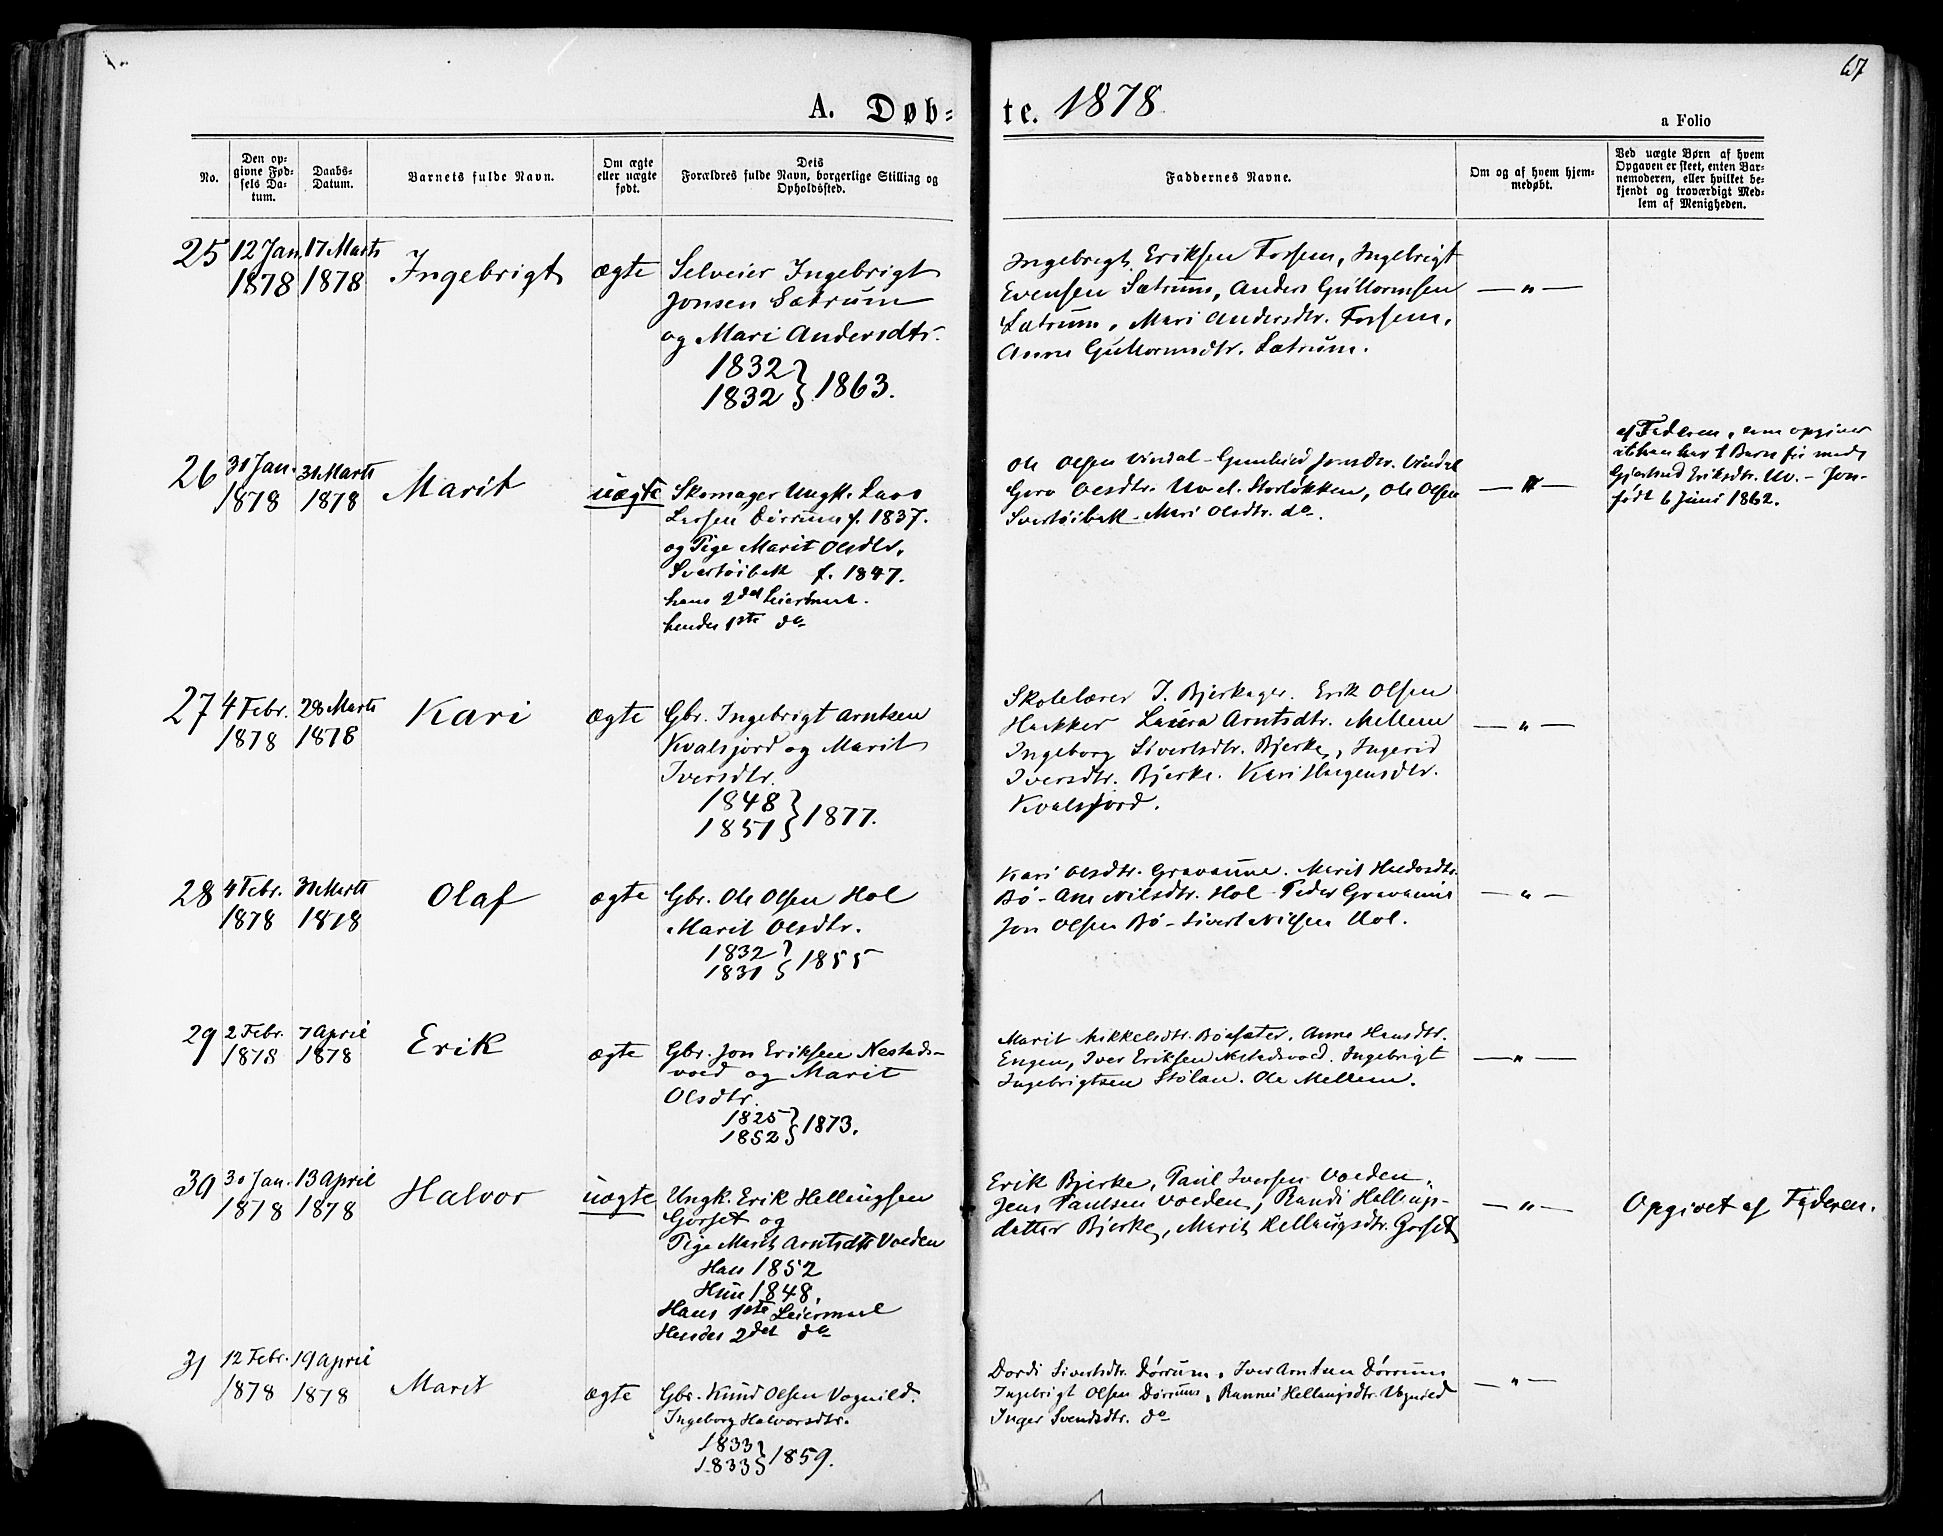 67
A. Døb= te. 1878
a Folio
No.
Den op=
givne Fød=
sels Da=
tum.
Daabs=
Datum.
Barnets fulde Navn.
Om ægte
eller uægte
født.
Dets
Forældres fulde Navn, borgerlige Stilling og
Opholdssted.
Faddernes Navne.
Om og af hvem hjem=
medøbt.
Ved uægte Børn af hvem
Opgaven er skeet, enten Bar=
nemoderen, eller hvilket be=
kjendt og troværdigt Med=
lem af Menigheden.
25
12 Jan.
1878
17 Marts
1878
Ingebrigt
ægte
Selveier Ingebrigt
Jonsen Sætrum
og Mari Andersdtr.
1832
1832 } 1863.
Ingebrigt Eriksen Forsem, Ingebrigt
Evensen Sætrum, Anders Guttormsen
Sætrum, Mari Andersdtr. Forsem,
Anne Guttormsdtr. Sætrum.
— " —
26
31 Jan.
1878
31 Marts
1878
Marit
uægte
Skomager Ungk. Lars
Larsen Dørrum f. 1837.
og Pige Marit Olsdtr.
Svertøibæk f. 1847.
hans 2det Leiermaal.
hendes 1ste do
Ole Olsen Vindal - Gunhild Jonsdtr. Vindal
Goro Olsdtr. Uv d. Storløkken, Ole Olsen
Svertøibæk - Mari Olsdtr. do.
— " —
af Faderen, som opgiver
at han har 1 Barn før med
Gjertrud Eriksdtr. Uv. - Jon.
født 6 Juni 1862.
27
4 Febr.
1878
28 Marts
1878
Kari
ægte
Gbr. Ingebrigt Arntsen
Kvalsjord og Marit
Iversdtr.
1848
1851 } 1877.
Skolelærer J. Bjerkager. Erik Olsen
Hækker Laura Arntsdtr. Mellem
Ingeborg Sivertsdtr. Bjerke, Ingerid
Iversdtr. Bjerke. Kari Haagensdtr.
Kvalsjord.
— " —
28
4 Febr.
1878
31 Marts
1878
Olaf
ægte
Gbr. Ole Olsen Hol
Marit Olsdtr.
1832
1831 } 1855
Kari Olsdtr. Gravaune. Marit Haldosdtr.
Bø - Ane Nilsdtr. Hol - Peder Gravaune
Jon Olsen Bø - Sivert Nilsen Hol.
— " —
29
2 Febr.
1878
7 April
1878
Erik
ægte
Gbr. Jon Eriksen Nestads-
vold og Marit
Olsdtr.
1825
1852 } 1873.
Marit Mikkelsdtr. Bøasæter. Anne Hansdtr.
Engen, Iver Eriksen Nestadsvold. Ingebrigt
Ingebrigtsen Stølan. Ole Mellem.
— " —
30
30 Jan.
1878
13 April
1878
Halvor
uægte
Ungk. Erik Hellingsen
Gorset og
Pige Marit Arntsdtr Voeden
Han 1852
Hun 1848.
Hans 1ste Leiermaal
Hendes 2det do
Erik Bjerke, Paul Iversen Voeden,
Jens Paulsen Voeden, Randi Hellings-
datter Bjerke, Marit Hellingsdtr. Gorset
— " —
Opgivet af Faderen.
31
12 Febr.
1878
19 April
1878
Marit
ægte
Gbr. Knud Olsen Vognild.
Ingeborg Halvorsdtr.
1833
1833 } 1859.
Dordi Sivertsdtr. Dørrum, Iver Arntsen Dørrum
Ingebrigt Olsen Dørrum, Rannei Hellingsdtr. Vognild
Inger Svendsdtr. do
— " —